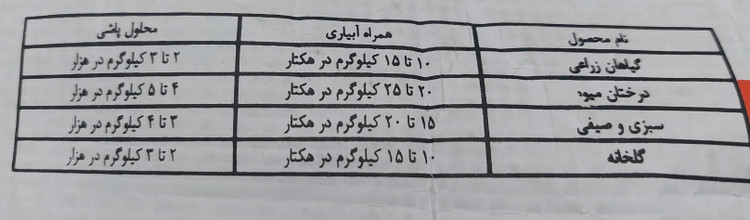 نام محصول همراه آبیاری محلول پاشی
گیاهان زراعی ۱۰ تا ۱۵ کیلوگرم در هکتار ۲ تا ۳ کیلوگرم در هزار
درختان میوه ۲۰ تا ۲۵ کیلوگرم در هکتار ۴ تا ۵ کیلوگرم در هزار
سبزی و صیفی ۱۵ تا ۲۰ کیلوگرم در هکتار ۳ تا ۴ کیلوگرم در هزار
گلخانه ۱۰ تا ۱۵ کیلوگرم در هکتار ۲ تا ۳ کیلوگرم در هزار